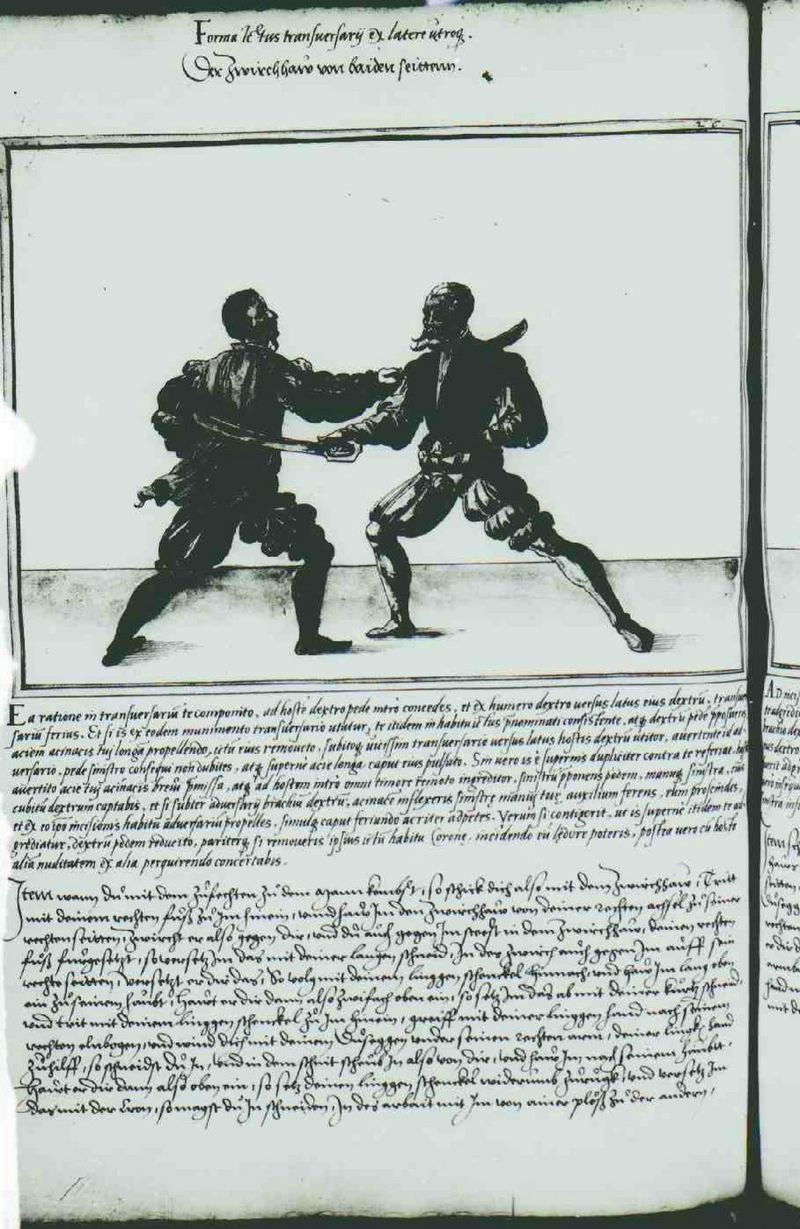 Forma Ictus transversarij ex latere utroq.
Der Zwirchhaw von baiden seittenn.
26
Ea ratione in transversariũ te componito, ad hostẽ dextro pede intro concedes, et ex humero dextro versus latus eius dextrũ, transver
sariũ ferius. Et si is ex eodem munimento transversario utatur, te itidem in habitu ictus prenominati consistente, atq dextrũ pedẽ pposueris
aciem acinacis tui longa propellendo, ictu eius remoto, subitoq vicissim transversario versus latus hostis dextrũ utitor, avertente id ad,
versario, pede sinistro consequi non dubites, atq superne acie longa caput eius pulsato. Sin vero is è supernis dupliciter contra te referiat,
avertito acie tui acinacis brevi pmissa, atq ad hostem intro omni timore remoto ingreditor, sinistrũ pponens pedem, manuq sinistra, eius
cubitũ dextrum captabis, et si subter adversarij brachiũ dextrũ, acinacẽ inflexeris sinistrę manus tuę auxilium ferens, eum proscindes,
et ex eo ipso incisionis habitu adversariũ propelles, simulq caput feriundo acriter adpetes. Verum si contigerit, ut is supernè itidem te ad
grediatur, dextrũ pedem reducito, pariterq si removeris ipsius ictũ habitu Coronę, incidendo eũ lędere poteris, postea vero cũ hoste
alia nuditatem ex alia perquirendo concertabis.
Item wann du mit dem zufechten zu dem Mann kumbst, so schick dich also mit dem Zwirchhaw, Tritt
mit deinem rechten fuß zu Im hinein, unnd haw Im den Zwirchhaw von deiner rechten achsel zu seiner
rechten seitten, zwircht er also gegen dir, und du auch gegen Im steest in dem Zwirchhaw, deinen rechten
fuß fürgesetzt, so versetz Im das mit deiner langen schneid, In der zwirch auch gegen Im auff sein
rechte seitten, versetzt er dir das, So volg mit deinem linggen schenckel hinnach, und haw Im lang oben
ein zu seinem haubt, Hawt er dir dann also zwifach oben ein, so setz Im das ab mit deiner kurtz schneid,
und trit mit deinem linggen schenckel zu Im hinein, greiff mit deiner linggen hand nach seinem
rechten elnbogen, und wind Inß mit deinem Dusęggen under seinen rechten arm, deiner lingk hand
zuhilff, so schneidst du In, und in dem schnit scheub In also von dir, und haw Im nach seinem haubt,
Hawt er dir dann also oben ein, so setz deinen linggen schenckel widerumb zurugk, und versetz Im
das mit der Cron, so magst du In schneiden, In des arbait mit Im von ainer plöß zu der andern,